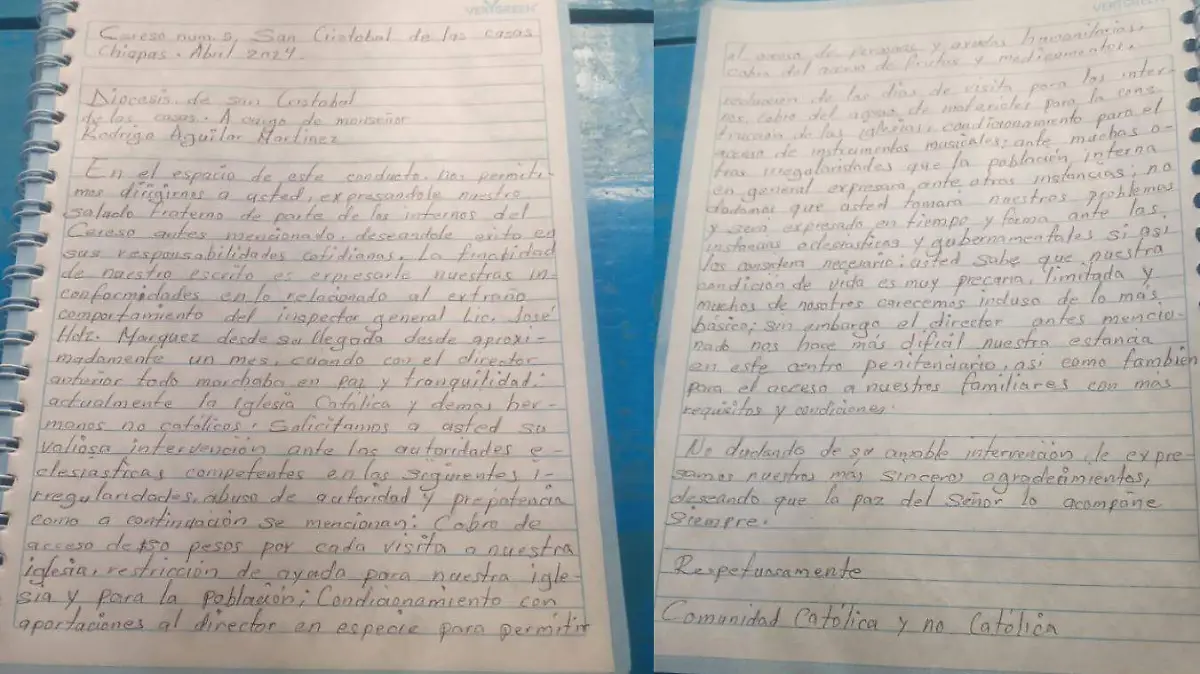 VERTGREEN
Cereso num. 5, San Cristobal de las casas
Chiapas. Abril 2024.
Diocesis de san Cristobal
de las casas. A cargo de monseñor
Rodrigo Aguilar Martinez
En el espacio de este conducto. nos permiti-
mos dirigirnos a usted, expresandole nuestro
saludo fraterno de parte de los internos del
Cereso antes mencionado, deseandole exito en
sus responsabilidades cotidianas. La finalidad
de nuestro escrito es expresarle nuestras in-
conformidades en lo relacionado al extraño
comportamiento del inspector general Lic. José
Hdz. Marquez desde su llegada desde aproxi-
madamente un mes, cuando con el director
anterior todo marchaba en paz y tranquilidad;
actualmente la iglesia Católica y demas her-
manos no católicos. Solicitamos a usted su
valiosa intervención ante las autoridades e-
clesiasticas competentes en las siguientes i-
rregularidades, abuso de autoridad y prepotencia
como a continuación se mencionan: Cobro de
acceso de $50 pesos por cada visita a nuestra
iglesia, restricción de ayuda para nuestra igle-
sia y para la población; Condicionamiento con
aportaciones al director en especie para permitir
VERTGREEN
el acceso de personas y ayudas humanitarias,
cobro del acceso de frutas y medicamentos,
reduccion de los dias de visita para los inter-
nos, cobro del de materiales para la cons-
trucción de las iglesias, condicionamiento para el
acceso de instrumentos musicales; ante muchas o-
tras irregularidades que la población interna
en general expresara ante otras instancias, no
dudamos que usted tomara nuestros problemas
y sera expresado en tiempo y forma ante las
instancias eclesiasticas y gubernamentales si asi
los considera necesario; usted sabe que nuestra
condición de vida es muy precaria, limitada y
muchos de nosotros carecemos incluso de lo más
básico; sin embargo el director antes mencio-
nado nos hace más dificil nuestra estancia
en este centro penitenciario, asi como tambien
para el acceso a nuestros familiares con mas
requisitos y condiciones.
No dudando de su amable intervención, le expre-
samos nuestros más sinceros agradecimientos,
deseando que la paz del Señor lo acompañe
siempre.
Respetuosamente
Comunidad Católica y no Católica